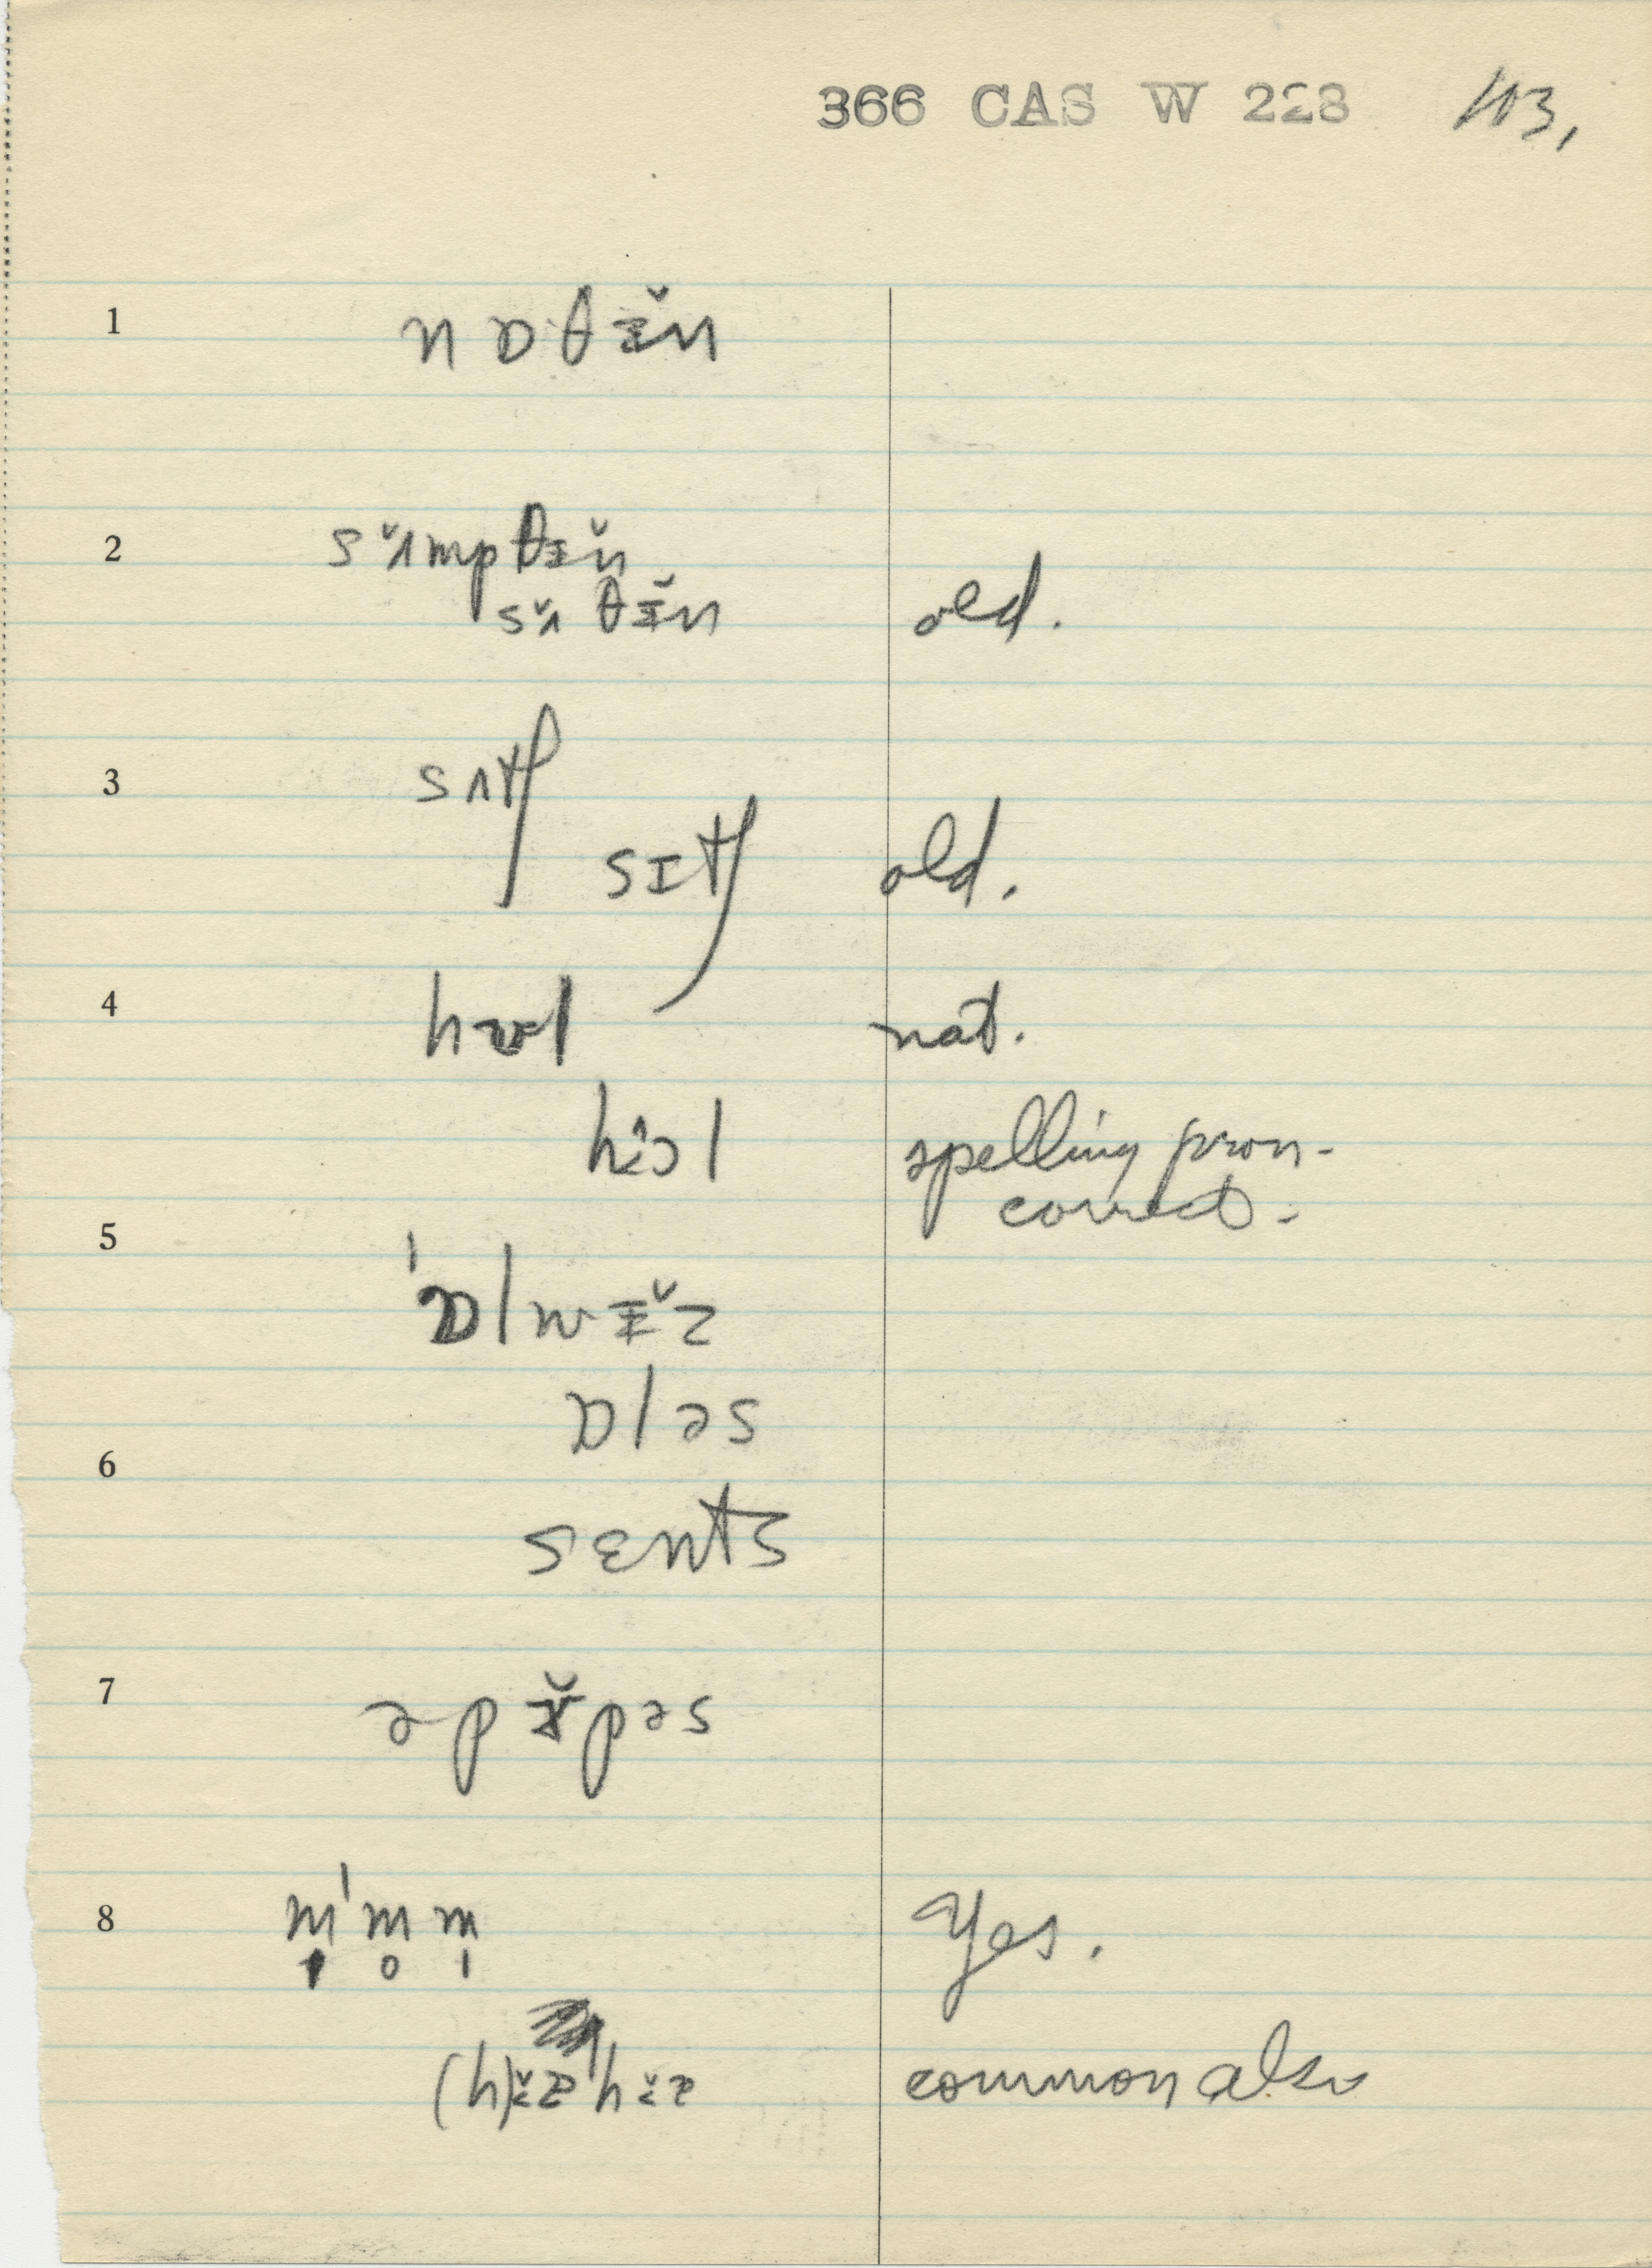 366 CAS W 228 103,
1 nɒθɪ̵̆n
2 sʌ̆mpθɪ̵̆n
sʌ̆θɪ̵̆n old.
3 sʌtʃ
sɪtʃ old.
4 nat.
l spelling pron-
correct.
5
ˈɒlwɪ̵̆z
ɒləs
6
sɛnts
7 əpɚ̆pəs
8 m̩ˈm̥m̩ Yes.
common also